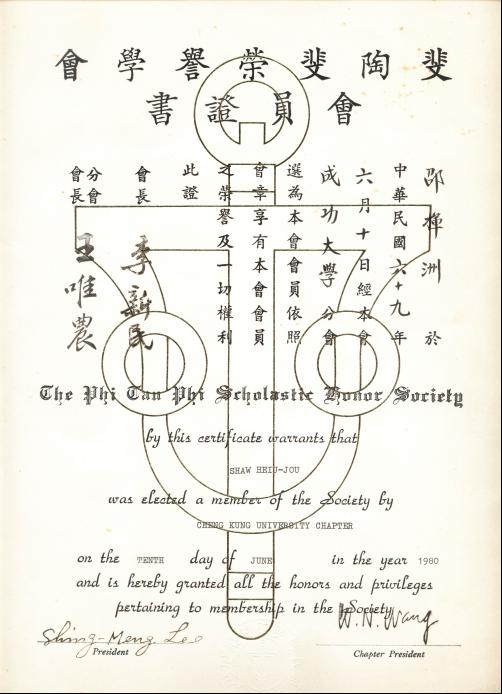 斐陶斐榮譽學會
會員證書
邵揮洲於
中華民國六十九年
六月十日經本會
成功大學分會
選為本會會員依照
會章享有本會會員
之榮譽及一切權利
此證
會長 李新民
分會會長 王唯農
The Phi Tau Phi Scholastic Honor Society
by this certificate warrants that
SHAW HEIU-JOU
was elected a member of the Society by
CHENG KUNG UNIVERSITY CHAPTER
on the TENTH day of JUNE in the year 1980
and is hereby granted all the honors and privileges
pertaining to membership in the Society
Shing-Meng Lee W. N. Wang
President Chapter President